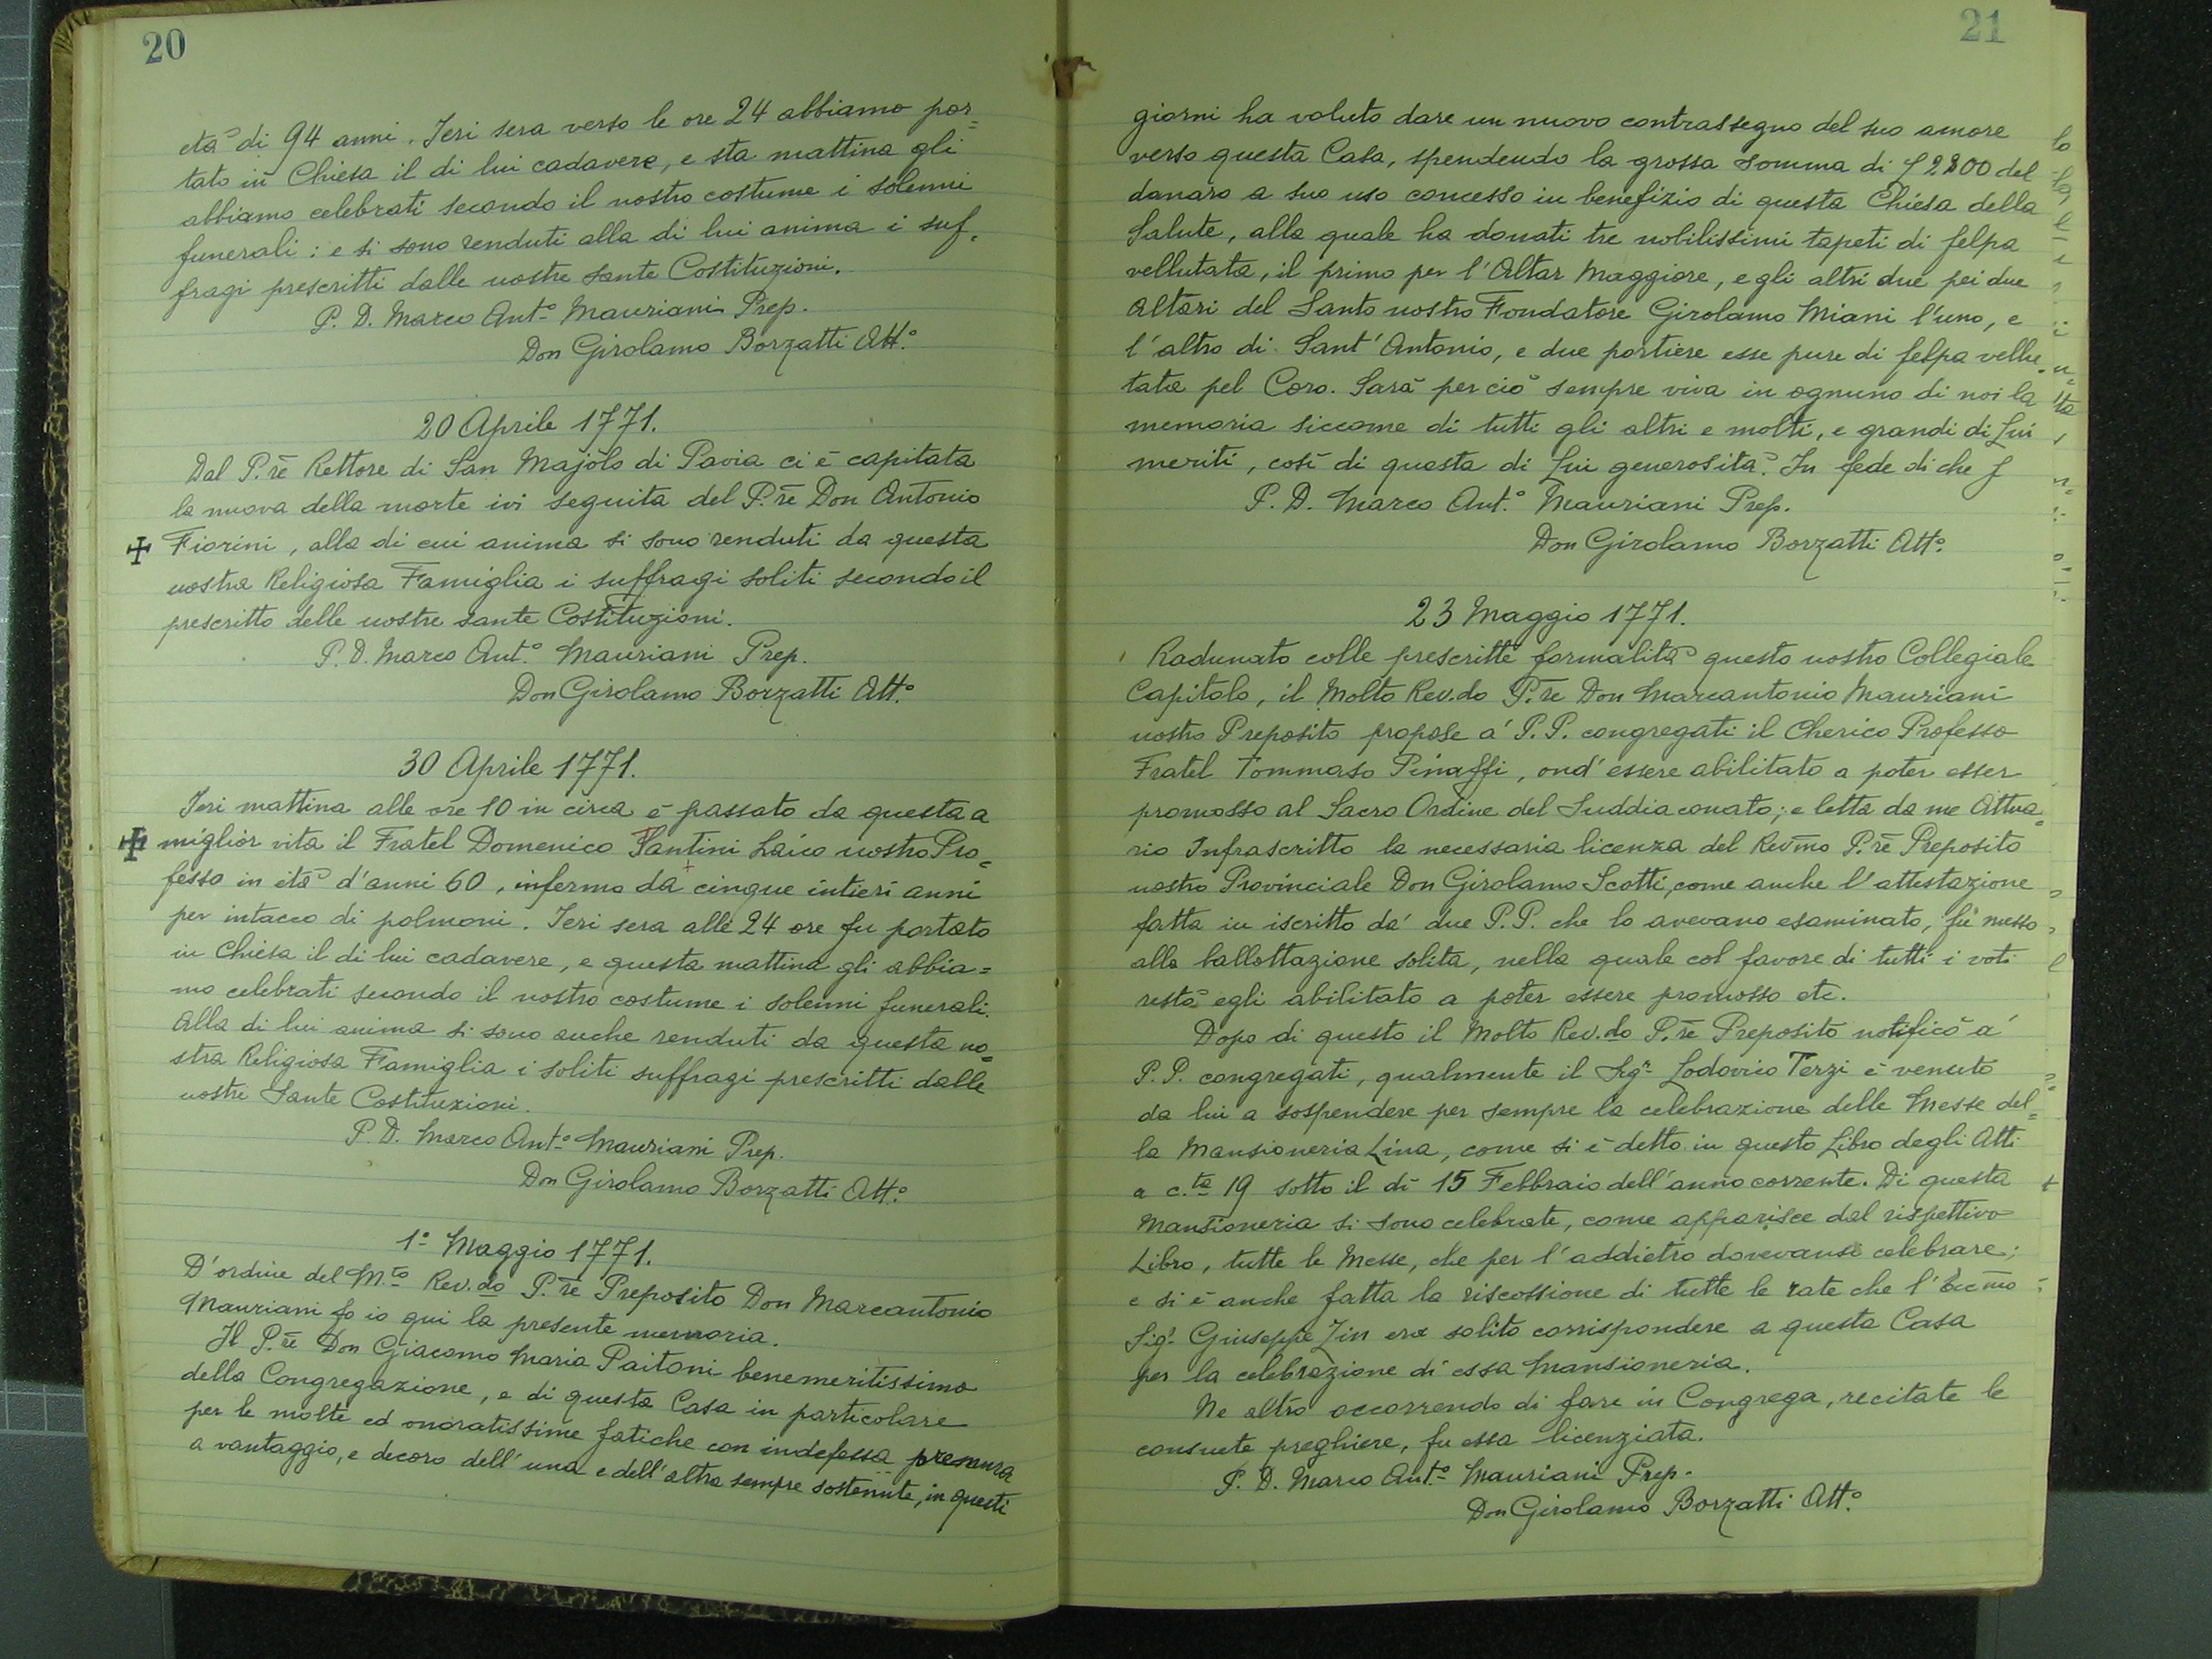 20
età di 94 anni. Ieri sera verso le ore 24 abbiamo por=
tato in Chiesa il di lui cadavere, e sta mattina gli
abbiamo celebrati secondo il nostro costume i solenni
funerali: e si sono renduti alla di lui anima i suf.
fragi prescritti dalle nostre sante Costituzioni.
P. D. Marco Ant.o Mauriani Prep.
Don Girolamo Borzatti Att.o
20 Aprile 1771.
Dal P.re Rettore di San Majolo di Pavia ci è capitata
la nuova della morte ivi seguita del P.re Don Antonio
✠ Fiorini, alla di cui anima si sono renduti da questa
nostra Religiosa Famiglia i suffragi soliti secondo il
prescritto delle nostre sante Costituzioni.
P. D. Marco Ant.o Mauriani Prep.
Don Girolamo Borzatti Att.o
30 Aprile 1771.
Ieri mattina alle ore 10 in circa è passato da questa a
✠ miglior vita il Fratel Domenico Santini Laico nostro Pro=
fesso in età d'anni 60, infermo da cinque intieri anni
per intacco di polmoni. Ieri sera alle 24 ore fu portato
in Chiesa il di lui cadavere, e questa mattina gli abbia=
mo celebrati secondo il nostro costume i solenni funerali.
Alla di lui anima si sono anche renduti da questa no=
stra Religiosa Famiglia i soliti suffragi prescritti dalle
nostre Sante Costituzioni.
P. D. Marco Ant.o Mauriani Prep.
Don Girolamo Borzatti Att.o
1.o Maggio 1771.
D'ordine del M.to Rev.do P.re Preposito Don Marcantonio
Mauriani fo io qui la presente memoria.
Il P.re Don Giacomo Maria Paitoni benemeritissimo
della Congregazione, e di questa Casa in particolare
per le molte ed onoratissime fatiche con indefessa premura
a vantaggio, e decoro dell'una e dell'altra sempre sostenute, in questi
21
giorni ha voluto dare un nuovo contrassegno del suo amore
verso questa Casa, spendendo la grossa somma di 2800 del
danaro a suo uso concesso in benefizio di questa Chiesa della
Salute, alla quale ha donati tre nobilissimi tapeti di felpa
vellutata, il primo per l'Altar Maggiore, e gli altri due pei due
Altari del Santo nostro Fondatore Girolamo Miani l'uno, e
l'altro di Sant'Antonio, e due portiere esse pure di felpa vellu=
tata pel Coro. Sarà perciò sempre viva in ognuno di noi la
memoria siccome di tutti gli altri e molti, e grandi di Lui
meriti, così di questa di Lui generosità. In fede di che
P. D. Marco Ant.o Mauriani Prep.
Don Girolamo Borzatti Att.o
23 Maggio 1771.
Radunato colle prescritte formalità questo nostro Collegiale
Capitolo, il Molto Rev.do P.re Don Marcantonio Mauriani
nostro Preposito propose a' P.P. congregati il Cherico Professo
Fratel Tommaso Pinaffi, ond'essere abilitato a poter esser
promosso al Sacro Ordine del Suddiaconato; e letta da me Attua=
rio Infrascritto la necessaria licenza del Rev̄mo P.re Preposito
nostro Provinciale Don Girolamo Scotti, come anche l'attestazione
fatta in iscritto da' due P.P. che lo avevano esaminato, fu messo
alla ballottazione solita, nella quale col favore di tutti i voti
restò egli abilitato a poter essere promosso etc.
Dopo di questo il Molto Rev.do P.re Preposito notificò a'
P.P. congregati, qualmente il Sig.r Lodovico Terzi è venuto
da lui a sospendere per sempre la celebrazione delle Messe del=
la Mansioneria Lina, come si è detto in questo Libro degli Atti
a c.ta 19 sotto il dì 15 Febbraio dell'anno corrente. Di questa
Mansioneria si sono celebrate, come apparisce dal rispettivo
Libro, tutte le Messe, che per l'addietro dovevansi celebrare;
e si è anche fatta la riscossione di tutte le rate che l'Ecc̄mo
Sig.r Giuseppe Zin era solito corrispondere a questa Casa
per la celebrazione di essa Mansioneria.
Ne altro occorrendo di fare in Congrega, recitate le
consuete preghiere, fu essa licenziata.
P. D. Marco Ant.o Mauriani Prep.
Don Girolamo Borzatti Att.o